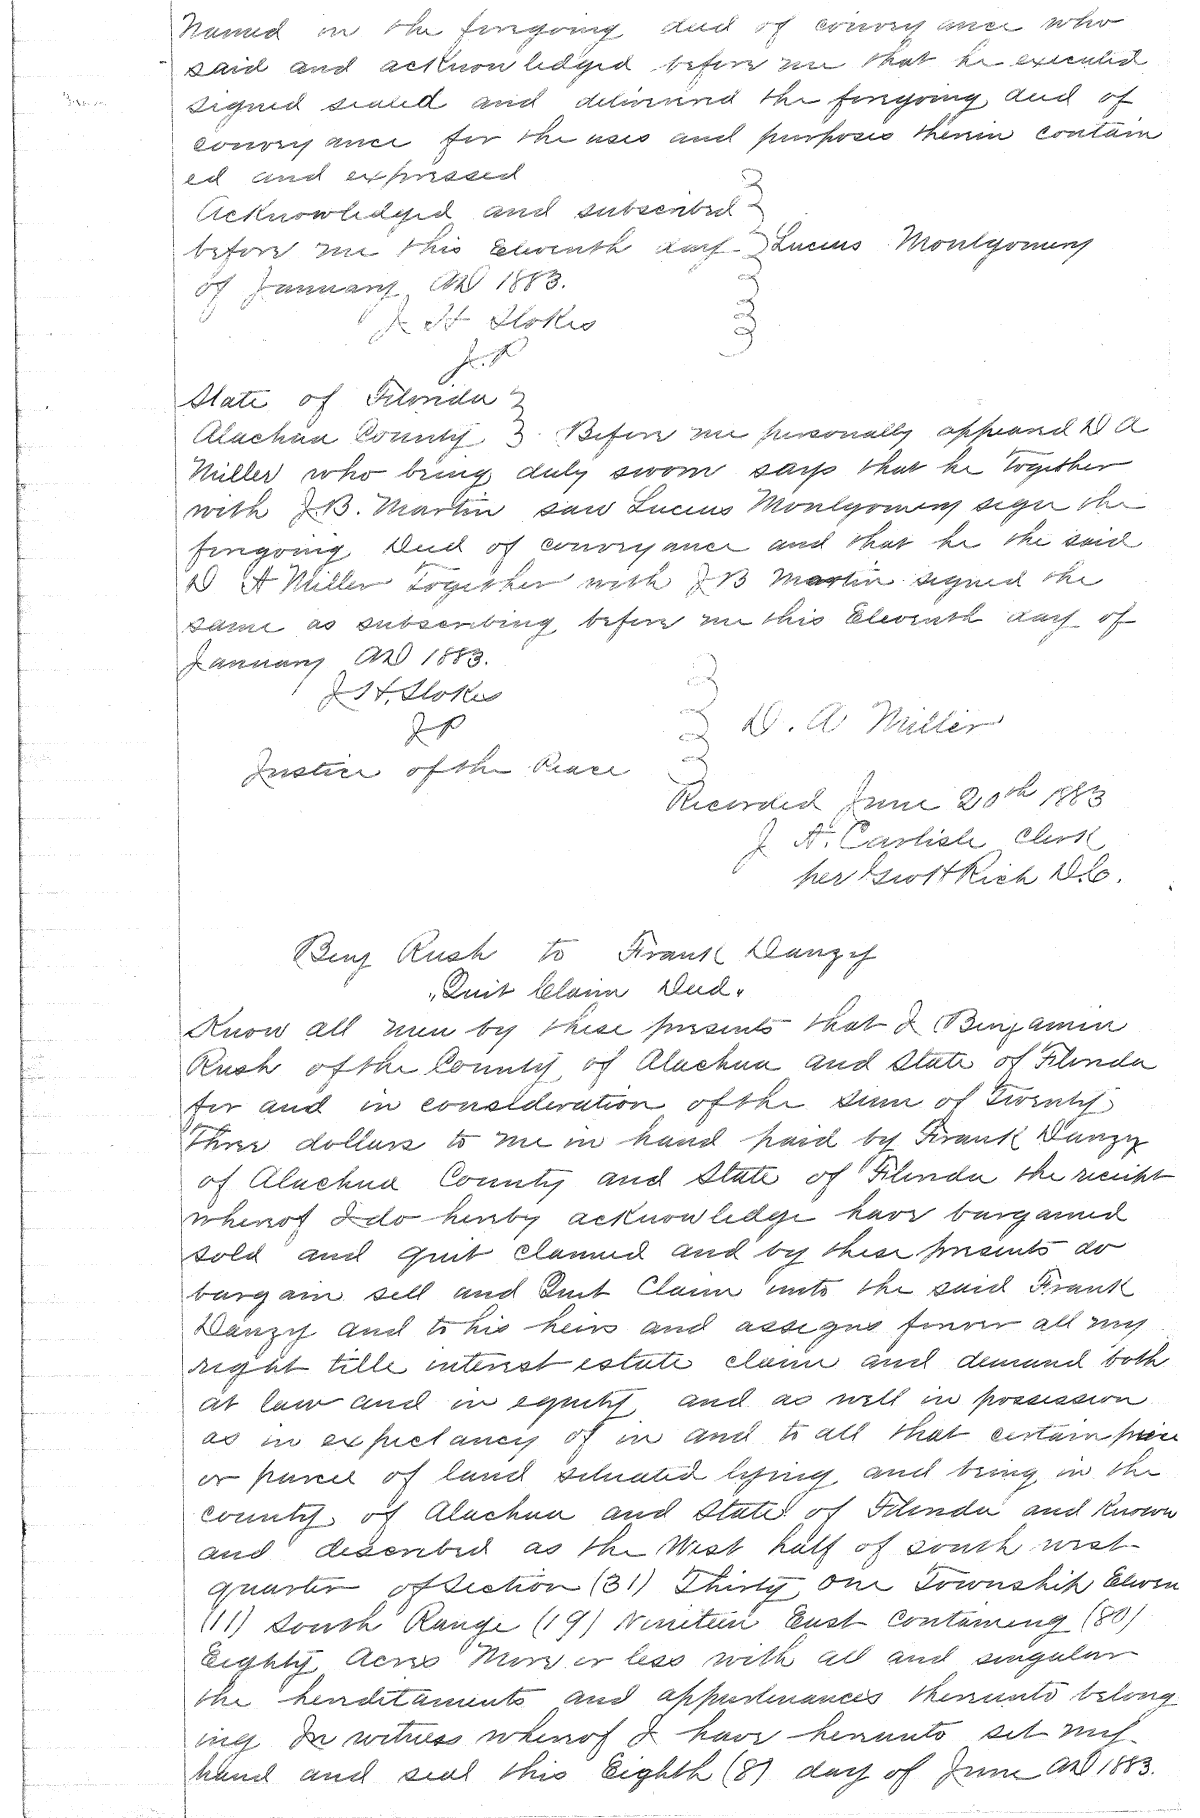 Named in the foregoing deed of conveyance who
said and acknowledged before me that he executed
signed sealed and delivered the foregoing deed of
conveyance for the uses and purposes therein contain
ed and expressed
Acknowledged and subscribed
before me this Eleventh day Lucius Montgomery
of January AD 1883.
J H Stokes
J.P
State of Florida
Alachua County Before me personally appeared D A
Miller who being duly sworn says that he together
with J B. Martin saw Lucius Montgomery sign the
foregoing Deed of conveyance and that he the said
D A Miller Together with J B Martin signed the
same as subscribing before me this Eleventh day of
January AD 1883.
J H. Stokes
J P
D. A Miller
Justice of the Peace
Recorded June 20th 1883
J A. Carlisle Clerk
per Geo H Rich D.C.
Benj Rush to Frank Danzy
"Quit Claim Deed"
Know all men by these presents that I Benjamin
Rush of the County of Alachua and State of Florida
for and in consideration of the sum of Twenty
Three dollars to me in hand paid by Frank Danzy
of Alachua County and State of Florida the receipt
whereof I do hereby acknowledge have bargained
sold and quit claimed and by these presents do
bargain sell and Quit Claim unto the said Frank
Danzy and to his heirs and assigns forever all my
right title interest estate claim and demand both
at law and in equity and as well in possession
as in expectancy of in and to all that certain piece
or parcel of land situated lying and being in the
county of Alachua and State of Florida and known
and described as the West half of south west
quarter of Section (31) Thirty One Township Eleven
(11) South Range (19) Nineteen East containing (80)
Eighty Acres More or less with all and singular
the hereditaments and appurtenances thereunto belong
ing In witness whereof I have hereunto set my
hand and seal this Eighth (8) day of June AD 1883.